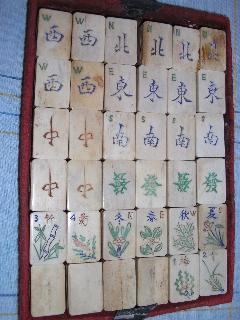 W W N N N N
西 西 北 北 北 北
W W E E E E
西 西 東 東 東 東
S S S S
中 中 南 南 南 南
中 中 發 發 發 發
3 竹 4 冬 春 E 秋 W 夏
1 2